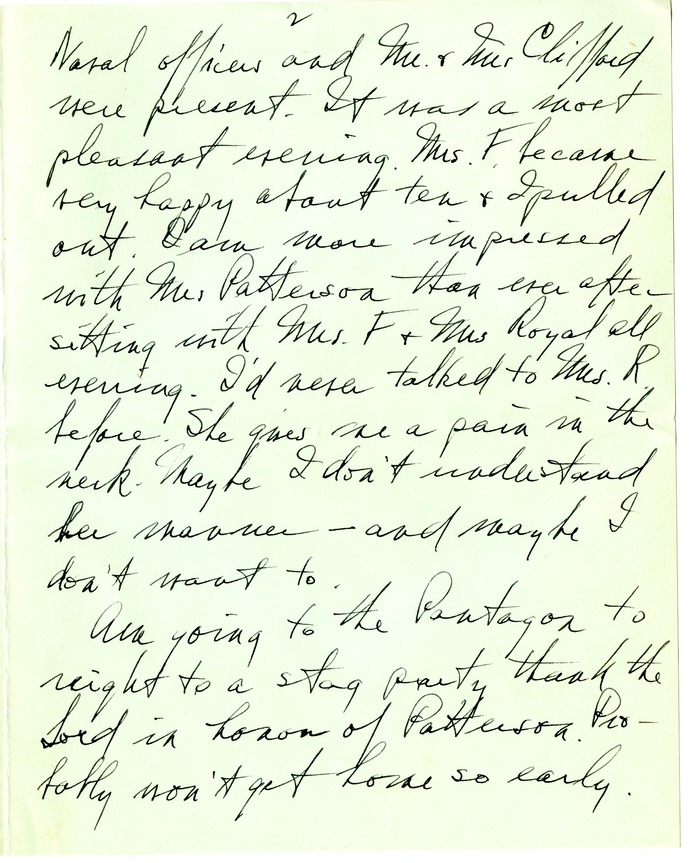 2
Naval officers and Mr. & Mrs Clifford
were present. It was a most
pleasant evening. Mrs. F. became
very happy about ten & I pulled
out. I am more impressed
with Mrs Patterson than ever after
sitting with Mrs. F & Mrs Royal all
evening. I'd never talked to Mrs. R.
before. She gives me a pain in the
neck. Maybe I don't understand
her manner – and maybe I
don't want to.
Am going to the Pentagon to
night to a stag party thank the
Lord in honor of Patterson. Pro-
bably won't get home so early.